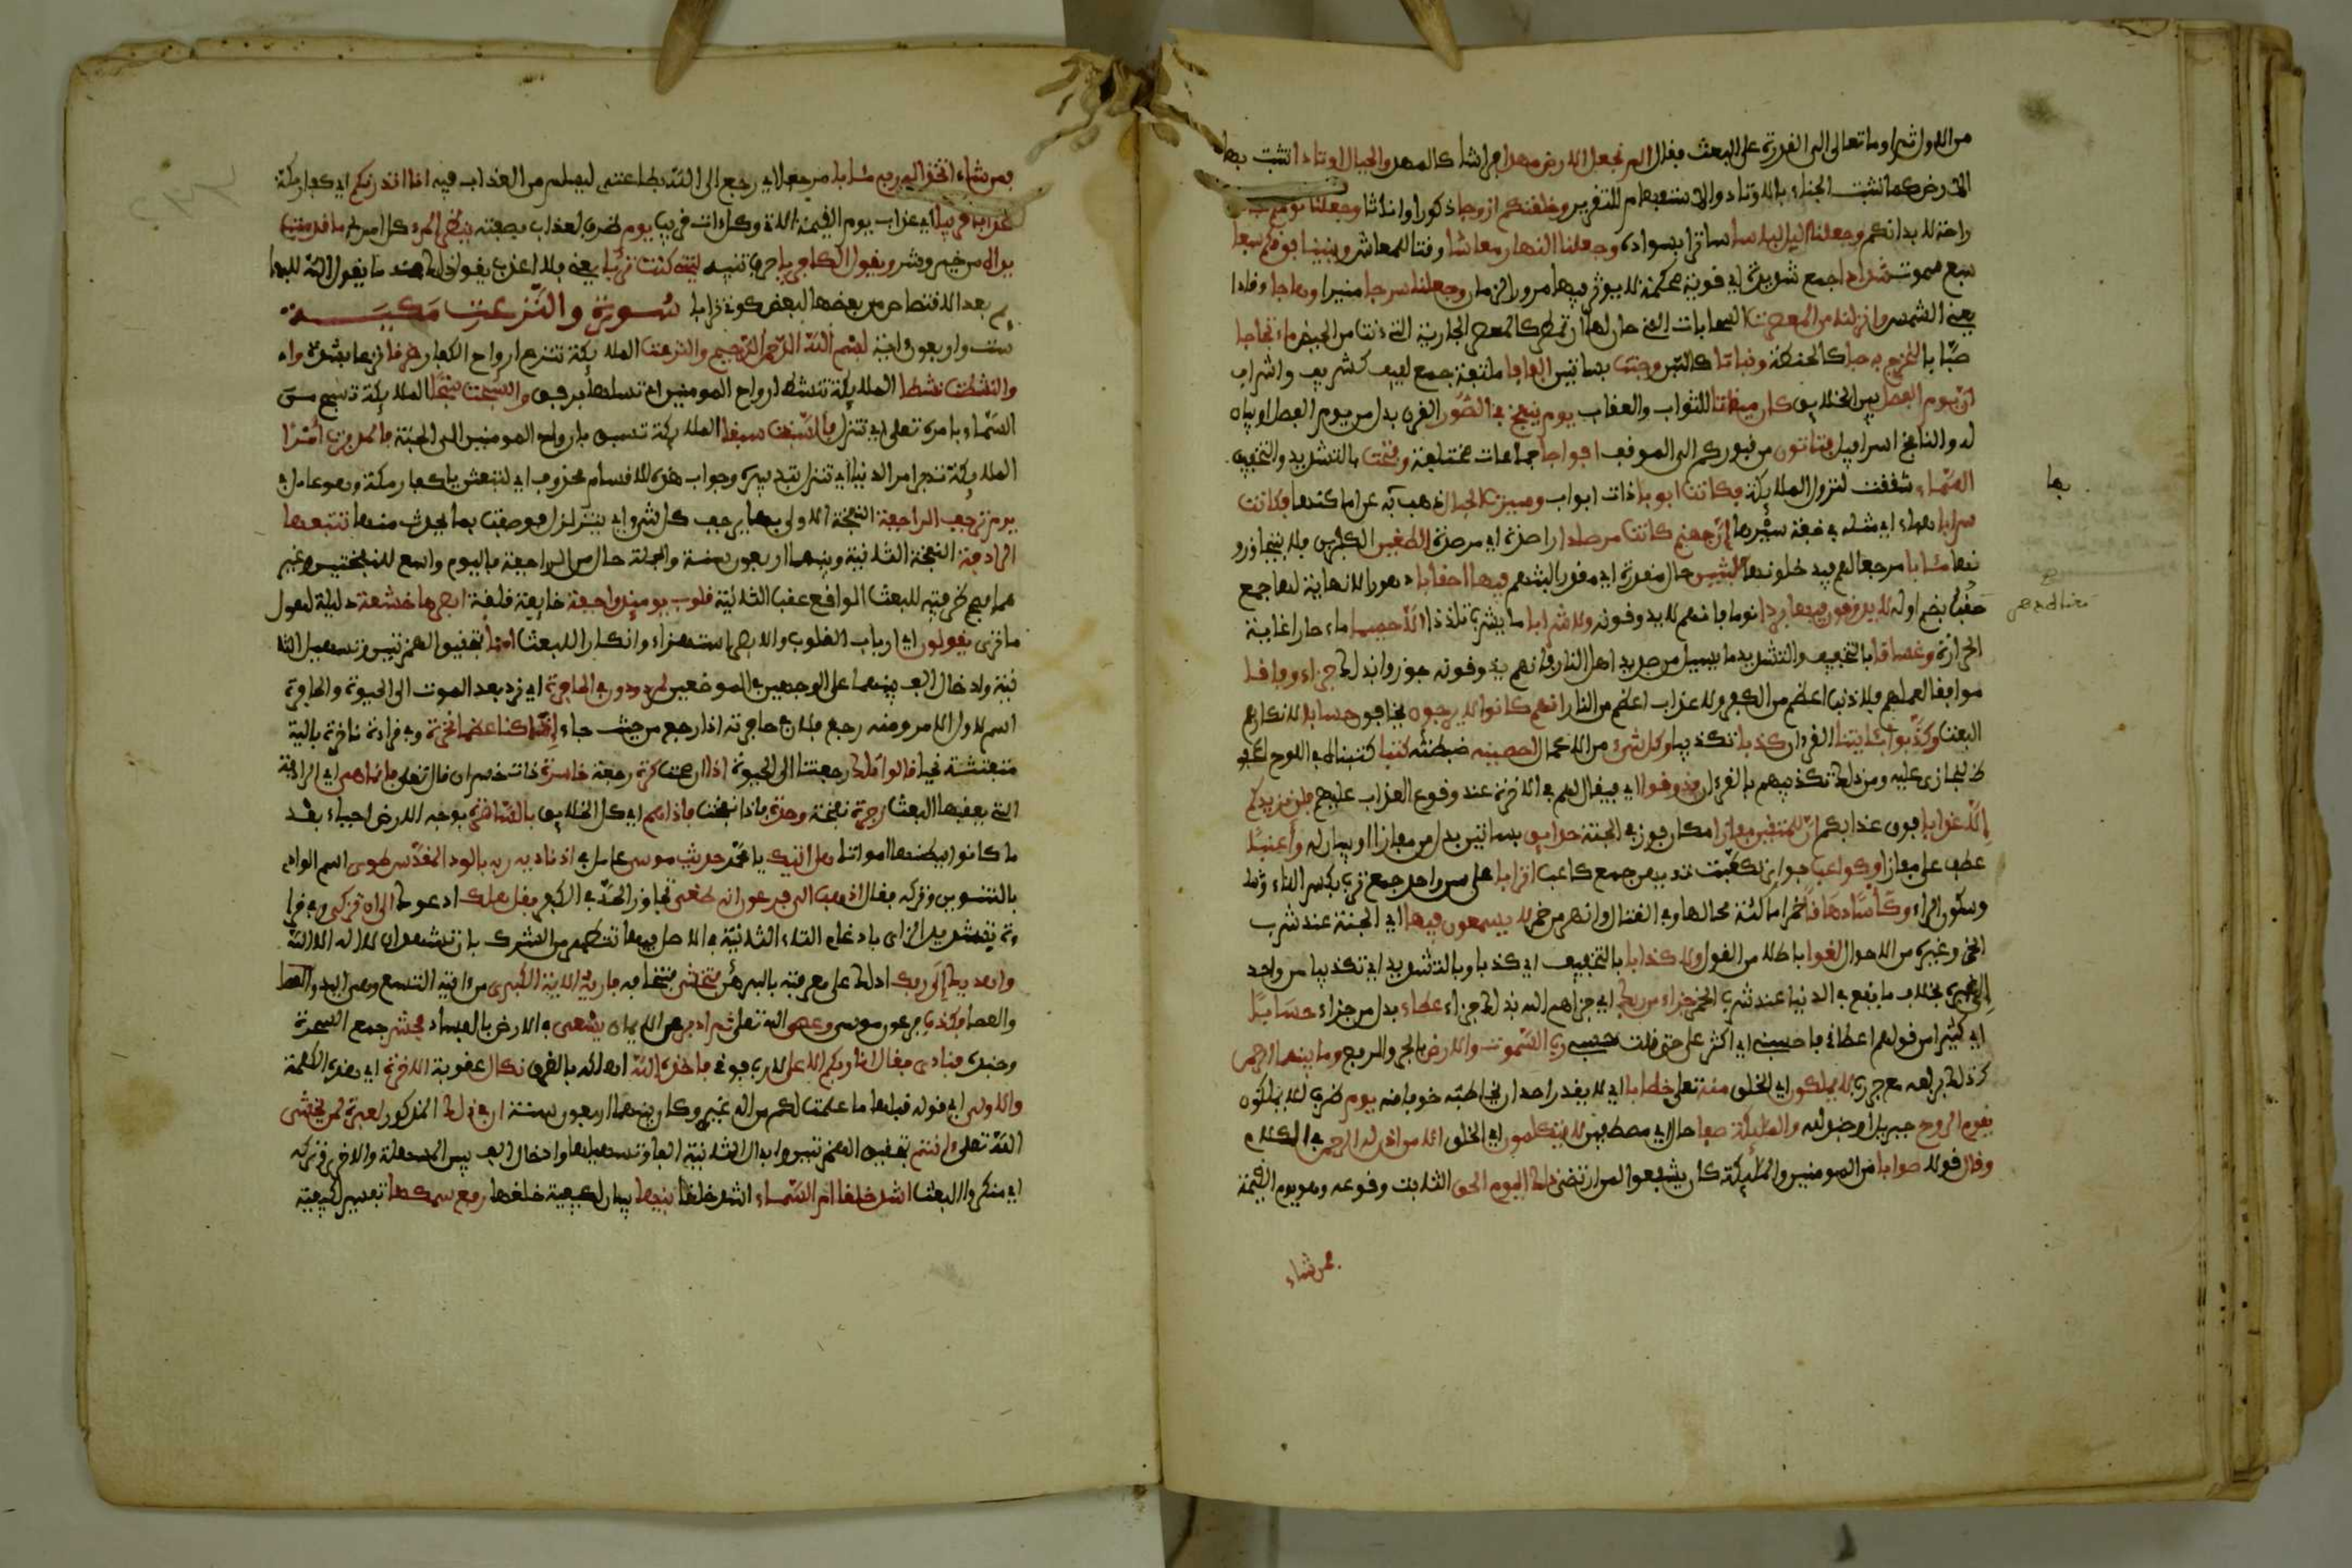 من الاول ثم اوما تعالى الى القدرة على البعث فقال الم نجعل الارض مهدا فراشا كالمهد والجبال اوتادا تثبت بها
الارض كما تثبت الخباء بالاوتاد والاستفهام للتقرير وخلقنكم ازوجا ذكورا واناثا وجعلنا نومكم
راحة لابدانكم وجعلنا اليل لباسا ساترا بسواده وجعلنا النهار معاشا وقتا للمعاش وبنينا فوقكم سبعا
سبع سموت شدادا جمع شديدة اي قوية محكمة لا يوثر فيها مرور الزمان وجعلنا سرجا منيرا وهاجا وقادا
يعني الشمس وانزلنا من المعصرت السحابات التي حان لها ان تمطر كالمعصر الجارية التي دنت من الحيض ماء ثجاجا
صبابا لنخرج به حبا كالحنطة ونباتا كالتبن وجنت بساتين الفافا ملتفة جمع لفيف كشريف واشراف
ان يوم الفصل بين الخلايق كان ميقاتا للثواب والعقاب يوم ينفخ في الصور القرن بدل من يوم الفصل او بيان
له والنافخ اسرافيل فتاتون من قبوركم الى الموقف افواجا جماعات مختلفة وفتحت بالتشديد والتخفيف
السماء شققت لنزول الملايكة فكانت ابوبا ذات ابواب وسيرت الجبال ذهب به عن اماكنها فكانت
سرابا هباء اي مثله في خفة سيرها ان جهنم كانت مرصادا راصدة او مرصدة للطغين الكفرين فلا يتجاوزو
نها مئابا مرجعا لهم فيدخلونها لبثين حال مقدرة اي مقدرا لبثهم فيها احقابا دهورا لا نهاية لها جمع
حقب بضم اوله لا يذوقون فيها بردا نوما فانهم لا يذوقونه ولا شرابا ما يشرب تلذذا الا حميما ماء حارا غاية
الحرارة وغساقا بالتخفيف والتشديد ما يسيل من صديد اهل النار فانهم يذوقونه جوزوا بذلك جزاء وفاقا
موافقا لعملهم فلا ذنب اعظم من الكفر ولا عذاب اعظم من النار انهم كانوا لا يرجون يخافون حسابا لانكارهم
البعث وكذبوا بئايتنا القرءان كذابا تكذيبا وكل شيء من الاعمال احصينه ضبطنه كتبا كتبنا في اللوح المحفو
ظ لنجازى عليه ومن ذلك تكذيبهم بالقرءان فذوقوا اي فيقال لهم في الاخرة عند وقوع العذاب عليهم فلن نزيدكم
الا عذابا فوق عذابكم ان للمتقين مفازا مكان فوز في الجنة حدايق بساتين بدل من مفازا او بيان له واعنبا
عطف على مفازا وكواعب جواري تكعبت ثديهن جمع كاعب اترابا على سن واحد جمع ترب بكسر التاء
وسكون الراء وكأسا دهاقا خمرا مالئة محالها وفي القتال وانهر من خمر لا يسمعون فيها اي الجنة عند شرب
الخمر وغيره من الاحوال لغوا باطلا من القول ولا كذابا بالتخفيف اي كذبا وبالتشديد اي تكذيبا من واحد
لغيره بخلاف ما يقع في الدنيا عند شرب الخمر جزاء من ربك اي جزاهم الله بذلك جزاء عطاء بدل من جزاء حسابا
اي كثيرا من قولهم اعطاني فاحسبني اي اكثر علي حتى قلت حسبي رب السموت والارض بالجر والرفع وما بينهما الرحمن
كذلك برفعه مع جر رب لا يملكون اي الخلق منه تعلى خطابا اي لا يقدر احد ان يخاطبه خوفا منه يوم ظرف للا يملكون
يقوم الروح جبريل او جند لله والمليكة صفا حال اي مصطفين لا يتكلمون اي الخلق الا من اذن له الرحمن في الكلام
وقال قولا صوابا من المومنين والمليكة كان يشفعوا لمن ارتضى ذلك اليوم الحق الثابت وقوعه وهو يوم القيمة
فمن شاء
بها
فمن شاء اتخذ الى ربه مئابا مرجعا اي رجع الى الله بطاعته ليسلم من العذاب فيه انا انذرنكم اي كفار مكة
عذابا قريبا اي عذاب يوم القيمة الاتي وكل ات قريب يوم ظرف لعذاب بصفته ينظر المرء كل امرئ ما قدمت
يداه من خير وشر ويقول الكافر يا حرف تنبيه ليتني كنت تربا يعني فلا اعذب يقول ذلك عند ما يقول الله للبها
يم بعد الاقتصاص من بعضها لبعض كوني ترابا سورة والنزعت مكية
ست واربعون اية بسم الله الرحمن الرحيم والنزعت الملايكة تنزع ارواح الكفار غرقا نزعا بشدة
والنشطت نشطا الملايكة تنشط ارواح المومنين اي تسلها برفق والسبحت سبحا الملايكة تسبح من
السماء بامره تعلى اي تنزل فالسبقت سبقا الملايكة تسبق بارواح المومنين الى الجنة فالمدبرت امرا
الملايكة تدبر امر الدنيا اي تنزل بتدبيره وجواب هذه الاقسام محذوف اي لتبعثن يا كفار مكة وهو عامل في
يوم ترجف الراجفة النفخة الاولى بها يرجف كل شيء اي يتزلزل فوصفت بما يحدث منها تتبعها
الرادفة النفخة الثانية وبينهما اربعون سنة والجملة حال من الراجفة فاليوم واسع للنفختين وغير
هما فصح ظرفيته للبعث الواقع عقب الثانية قلوب يوميذ واجفة خايفة قلقة ابصرها خشعة ذليلة لهول
ما ترى يقولون اي ارباب القلوب والابصر استهزاء وانكارا للبعث اءنا بتحقيق الهمزتين وتسهيل الثا
نية وادخال الف بينهما على الوجهين في الموضعين لمردودون في الحافرة اي نرد بعد الموت الى الحيوة والحافرة
اسم لاول الامر ومنه رجع فلان في حافرته اذا رجع من حيث جاء اءذا كنا عظما نخرة وفي قراءة ناخرة بالية
متفتتة نحيا قالوا تلك رجعتنا الى الحيوة اذا ان صحت كرة رجعة خاسرة ذات خسران قال تعلى فانما هي اي الرادفة
التي يعقبها البعث زجرة نفخة وحدة فاذا نفخت فاذا هم اي كل الخلايق بالساهرة بوجه الارض احياء بعد
ما كانوا ببطنها امواتا هل اتيك يا محمد حديث موسى عامل في اذ ناديه ربه بالواد المقدس طوى اسم الوادي
بالتنوين وتركه فقال اذهب الى فرعون انه طغى تجاوز الحد في الكفر فقل هل لك ادعوك الى ان تزكى وفي قرا
ءة بتشديد الزاي بادغام التاء الثانية في الاصل فيها تتطهر من الشرك بان تشهد ان لا اله الا الله
واهديك الى ربك ادلك على معرفته بالبرهن فتخشى فتخافه فاريه الاية الكبرى من اياته التسع وهي اليد او العصا
والعصا فكذب فرعون موسى وعصى الله تعلى ثم ادبر عن الايمان يسعى في الارض بالفساد فحشر جمع السحرة
وجنده فنادى فقال انا ربكم الاعلى لا رب فوقي فاخذه الله اهلكه بالغرق نكال عقوبة الاخرة اي هذه الكلمة
والاولى اي قوله قبلها ما علمت لكم من اله غيري وكان بينهما اربعون سنة ان في ذلك المذكور لعبرة لمن يخشى
الله تعلى ءانتم بتحقيق الهمزتين وابدال الثانية الفا وتسهيلها وادخال الف بين المسهلة والاخرى وتركه
اي منكروا البعث اشد خلقا ام السماء اشد خلقا بنيها بيان لكيفية خلقها رفع سمكها تفسير لكيفية